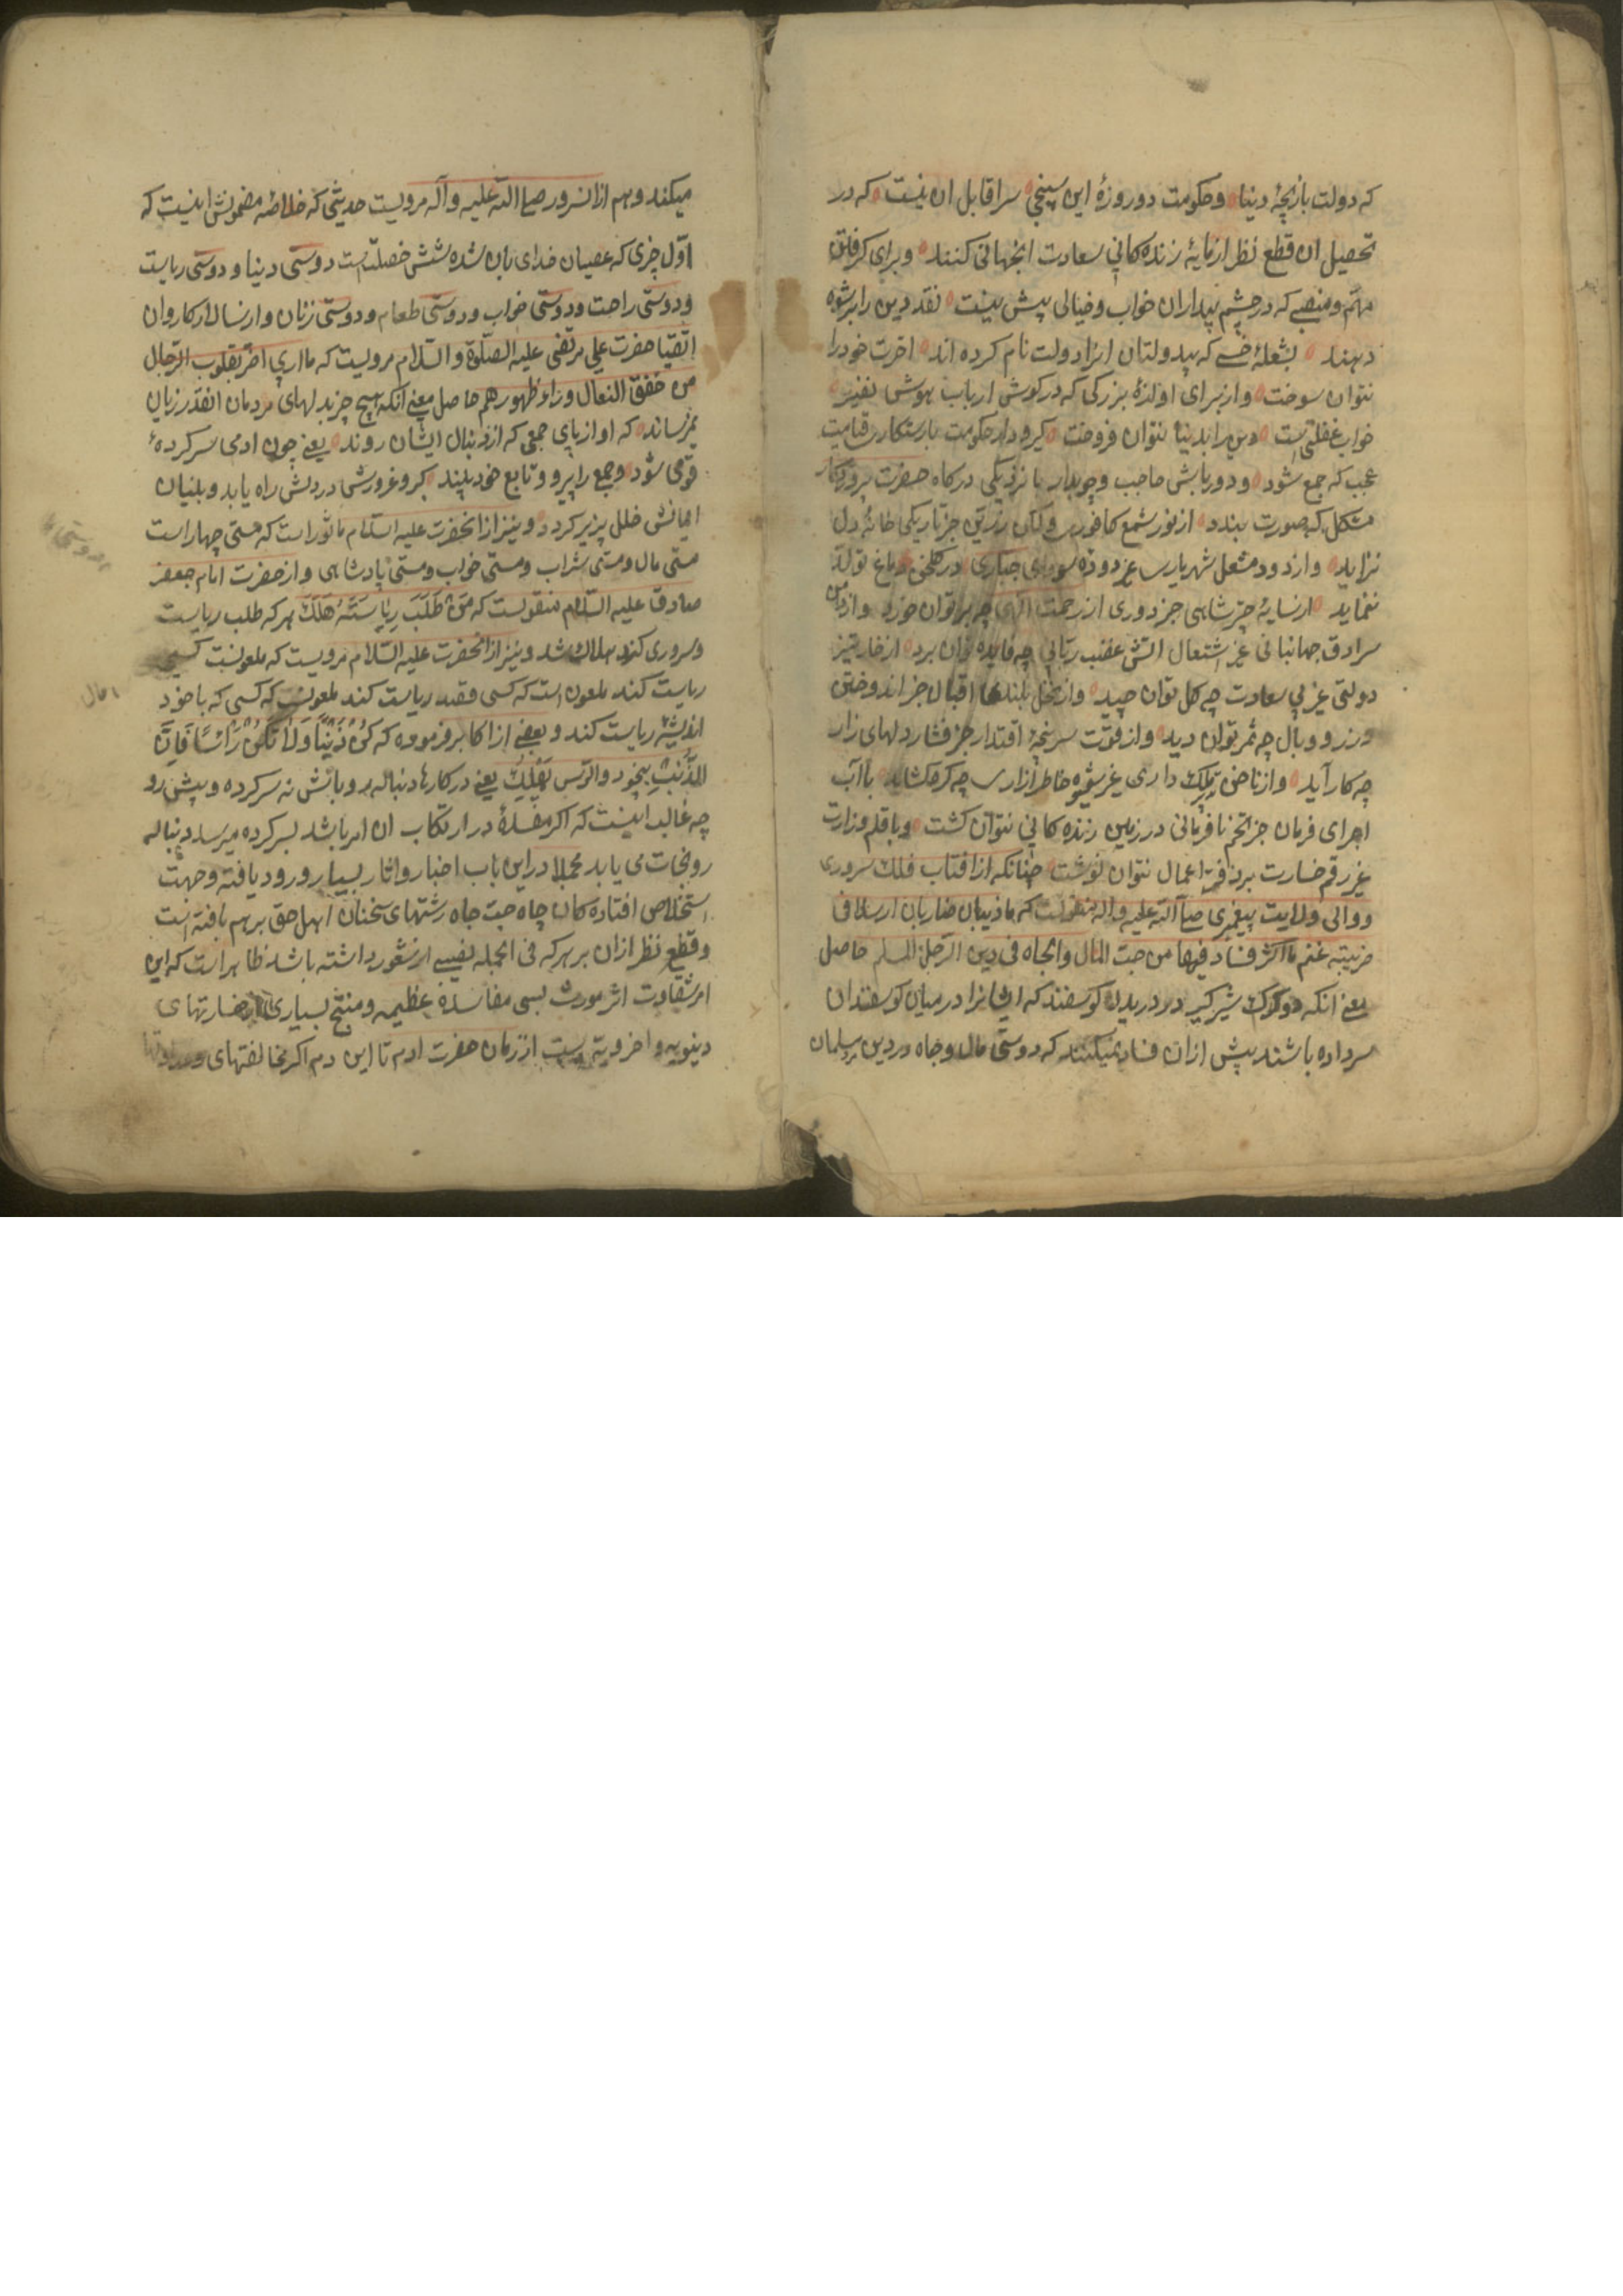 که دولت بازیچهٔ دنیا و حکومت دو روزهٔ این سپنجی سرا قابل ان نیست که در
تحصیل ان قطع نظر از مایهٔ زنده کانی سعادت انجهانی کنند و برای کرفتن
مهم و منصبی که در چشم بیداران خواب و خیالی بیش نیست نقد دین را برشوه
دهند بشعلهٔ خسی که بیدولتان انرا دولت نام کرده اند اخرت خود را
نتوان سوخت و از برای اوازهٔ بزرکی که در کوش ارباب هوش نفیر
خواب غفلتی است دین را بدنیا نتوان فروخت کیر و دار حکومت با رستکاری قیامت
عجب که جمع شود و دورباش حاجب و چوبدار با نزدیکی درکاه حضرت پروردکار
مشکل که صورت بندد از نور شمع کافوری و لکن زرین جز تاریکی خانهٔ دل
نزاید و از دود مشعل شهریاری غیر دودهٔ سودای جباری در کلخن دماغ تولد
ننماید از سایهٔ چتر شاهی جز دوری از رحمت الهی چه بر توان خورد و از دامن
سرادق جهانبانی غیر اشتعال اتش غضب ربانی چه فایده توان برد از خار تیز
دولتی غیر بی سعادت چه کل توان چید و از نخل بلند اقبال جز اندوختن
وزر و وبال چه ثمر توان دید و از قوت سرپنجهٔ اقتدار جز فشار دلهای زار
چه کار آید و از ناخن پلنک داری غیر شیوه خاطر ازاری چه کره کشاید با آب
اجرای فرمان جز تخم نافرمانی در زمین زنده کانی نتوان کشت و با قلم وزارت
غیر رقم خسارت بر دفتر اعمال نتوان نوشت چنانکه از افتاب فلک سروری
و والی ولایت پیغمبری صلی الله علیه و اله منقولست که ما ذیبان ضاریان ارسلا فی
ضریبة غنم باکثر فسادا فیها من حب المال والجاه فی دین الرجل المسلم حاصل
معنی انکه دو کرک شیر کیر در دریدن کوسفند که ایشانرا در میان کوسفندان
سر داده باشند بیش از ان فساد نمیکنند که دوستی مال و جاه در دین مرد مسلمان
میکند و هم از ان سرور صلی الله علیه و آله مرویست حدیثی که خلاصهٔ مضمونش اینست که
اول چیزی که عصیان خدای بان شده شش خصلت است دوستی دنیا و دوستی ریاست
و دوستی راحت و دوستی خواب و دوستی طعام و دوستی زنان و از سالار کاروان
اتقیا حضرت علی مرتضی علیه الصلوة و السلام مرویست که ما اری اضر بقلوب الرجال
من خفق النعال وراء ظهورهم حاصل معنی انکه هیچ چیز بدلهای مردمان انقدر زیان
نمیرساند که اواز پای جمعی که از دنبال ایشان روند یعنی چون ادمی سرکردهٔ
قومی شود و جمعی را پیرو و تابع خود بیند کبر و غرورش در دلش راه یابد و بنیان
ایمانش خلل پزیر کردد و نیز از انحضرت علیه السلام ماثور است که مستی چهار است
مستی مال و مستی شراب و مستی خواب و مستی پادشاهی و از حضرت امام جعفر
صادق علیه السلام منقولست که مَنْ طَلَبَ رِیاسَتَهُ هَلَکَ هر که طلب ریاست
و سروری کند هلاک شد و نیز از انحضرت علیه السلام مرویست که ملعونست کسی
ریاست کند ملعون است که کسی قصد ریاست کند ملعونست که کسی که با خود
اندیشهٔ ریاست کند و بعضی از اکابر فرموده که کُنْ ذَنَبًا وَلا تَکُنْ رَأسًا فَاِنَّ
الذَّنَبَ ینجو و الراس یهلک یعنی در کارها دنباله رو باش نه سرکرده و پیش رو
چه غالب اینست که اکر مفسدهٔ در ارتکاب ان امر باشد بسرکرده میرسد و دنباله
رو نجات می یابد مجملا در این باب اخبار و اثار بسیار ورود یافته و جهت
استخلاص افتاده کان چاه حب جاه رشتهای سخنان اهل حق بر هم بافته است
و قطع نظر از ان بر هر که فی الجمله نصیبی از شعور داشته باشد ظاهر است که این
امر شقاوت اثر مورث بسی مفاسدهٔ عظیمه و منتج بسیاری از خسارتهای
دنیویه و اخرویه است از زمان حضرت ادم تا این دم اکر مخالفتهای